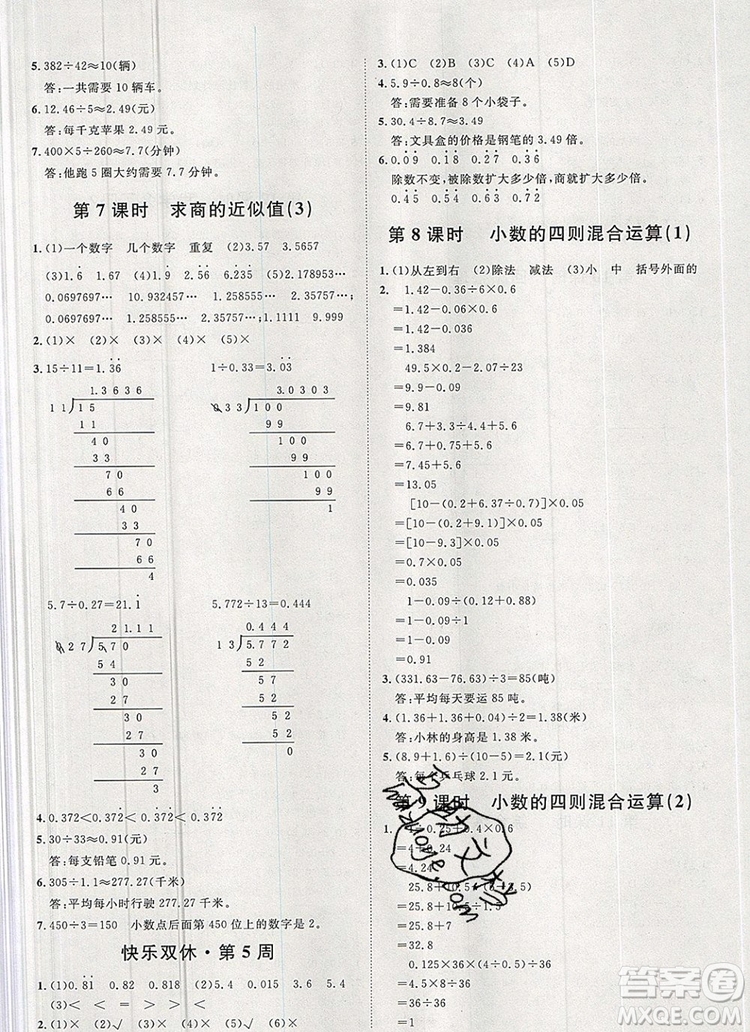 5. 382÷42≈10(辆)
答:一共需要 10 辆车。
6. 12.46÷5≈2.49(元)
答:每千克苹果 2.49 元。
7. 400×5÷260≈7.7(分钟)
答:他跑 5 圈大约需要 7.7 分钟。
第 7 课时 求商的近似值(3)
1. (1)一个数字 几个数字 重复 (2)3.5 3.5657
(3)1.6̇ 1.67 4.4̇6̇ 4.46 6.2̇35̇ 6.235 2.178078…
0.0697697… 10.932457… 1.258555… 2.35757…
0.0697697… 1.258555… 2.35757… 1.1111 9.999
2. (1)× (2)× (3)× (4)× (5)×
3. 15÷11=1.3̇6̇ 1÷0.33=3.0̇3̇
1.3636
11 15
11
40
33
70
66
40
33
70
66
4
3.0303
0.33 100
99
100
99
1
5.7÷0.27=21.1̇ 5.772÷13=0.444
21.11
0.27 5.70
54
30
27
30
27
30
27
3
0.444
13 5.772
52
57
52
52
52
0
4. 0.372<0.372̇<0.37̇2̇<0.3̇72̇
5. 30÷33≈0.91(元)
答:每支铅笔 0.91 元。
6. 305÷1.1≈277.27(千米)
答:平均每小时行驶 277.27 千米。
7. 450÷3=150 小数点后面第 450 位上的数字是 2。
快乐双休·第 5 周
1. (1)0.8̇1̇ 0.82 0.818 (2)5.4 5 3.4 3
(3)< < = >
2. (1)× (2)√ (3)× (4)√ (5)×
3. (1)C (2)B (3)C (4)A (5)D
4. 5.9÷0.8≈8(个)
答:需要准备 8 个小袋子。
5. 30.4÷8≈3.8
答:文具盒的价格是钢笔的 3.8 倍。
6. 0.0̇9̇ 0.1̇8̇ 0.2̇7̇ 0.3̇6̇
除数不变,被除数扩大多少倍,商就扩大多少倍。
0.4̇5̇ 0.5̇4̇ 0.6̇3̇ 0.7̇2̇
第 8 课时 小数的四则混合运算(1)
1. (1)从左到右 (2)除法 减法 (3)小 中 括号外面的
2. 1.42-0.36÷6×0.6
=1.42-0.06×0.6
=1.42-0.036
=1.384
49.5×0.2-2.07÷23
=9.9-0.09
=9.81
6.7+3.3÷4.4+5.6
=6.7+0.75+5.6
=7.45+5.6
=13.05
[10-(0.2+6.37÷0.7)]×0.05
=[10-(0.2+9.1)]×0.05
=[10-9.3]×0.05
=0.7×0.05
=0.035
1-0.09÷(1.2-0.75)
=1-0.09÷0.45
=1-0.2
=0.8
3. (331.63-76.63)÷3=85(吨)
答:平均每天要运 85 吨。
4. (1.36+1.36+0.04)÷2=1.38(米)
答:小林的身高是 1.38 米。
5. (8.9+1.6)÷(10-5)=2.1(元)
答:每个乒乓球 2.1 元。
第 9 课时 小数的四则混合运算(2)
=4+0.24
=4.24
=25.8+10÷10
=25.8+1
=32.8
0.125×0.36×(8÷1)÷36
=36÷36
=1
答案圈
MXQE.COM